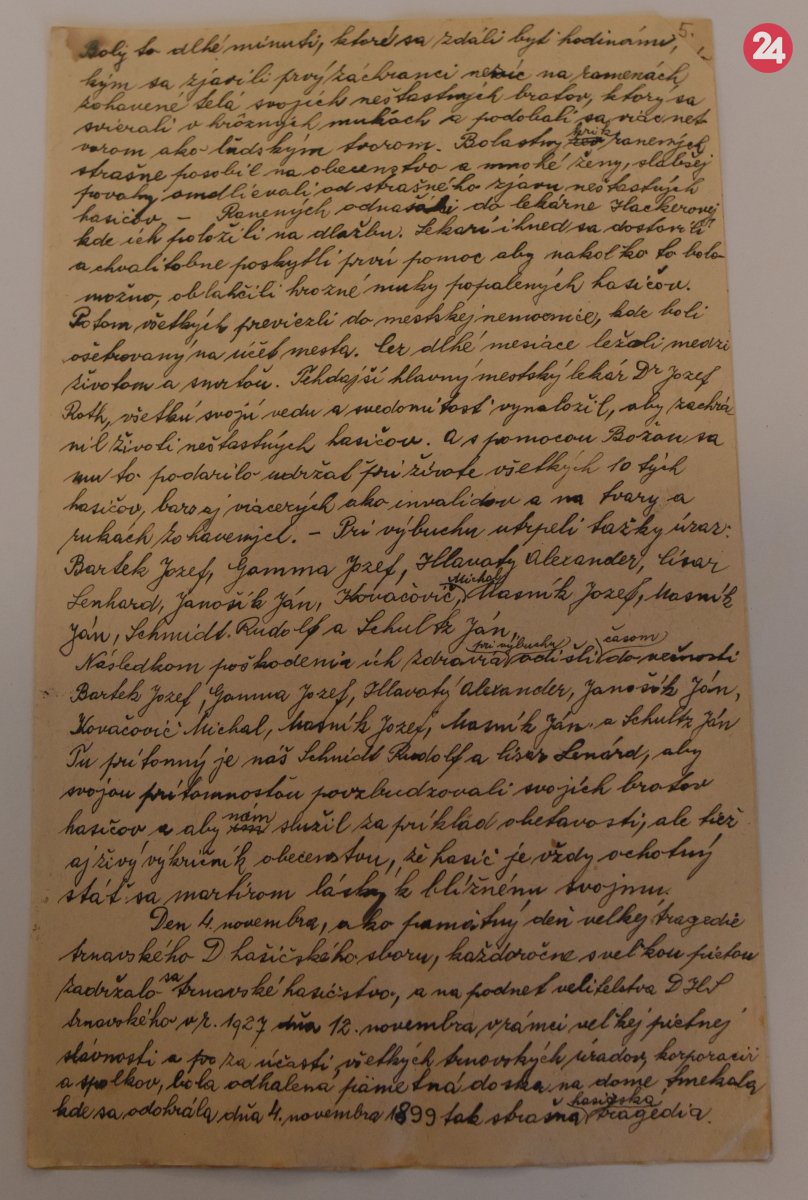 24
5.
Boly to dlhé minuti, ktoré sa zdáli byť hodinámi,
kým sa zjavili prvý záchranci nesúc na ramenách
zohavené telá svojich neštastných bratov, ktorý sa
svierali v hrôzných mukách a podobali sa viac net
vorom ako ľudským tvorom. Bolastny krik ranených
strašne posobil na obecenstvo a mnohé ženy, slabšej
povahy omdlievali od strašného zjavu neštastných
hasičov. — Ranených odnášali do lekárne Hackerovej
kde ich položili na dlažbu. Lekari ihned sa dostavili
a chvalitebne poskytli prvú pomoc aby nakoľko to bolo
možno, obľahčili hrozné muky popalených hasičov.
Potom všetkých previezli do mestskej nemocnice, kde boli
ošetrovaný na účet mesta. Cez dlhé mesiace ležali medzi
životom a smrťou. Tehdajší hlavný mestský lekár Dr Jozef
Roth, všetkú svojú vedu a svedomitosť vynaložil, aby zachrá
nil životi neštastných hasičov. A s pomocou Božou sa
mu to podarilo udržať pri živote všetkých 10 tých
hasičov, barsaj viacerých ako invalidov a na tvary a
rukách zohavených. — Pri výbuchu utrpeli ťažky úraz:
Bartek Jozef, Gamma Jozef, Hlavatý Alexander, Císar
Lenhard, Janošík Ján, Kovačovič Michal, Masník Jozef, Masník
Ján, Schmidt Rudolf a Schultz Ján.
Následkom poškodenia ich zdravia pri výbuchu odišli časom do večnosti
Bartek Jozef, Gamma Jozef, Hlavatý Alexander, Janošík Ján,
Kovačovič Michal, Masník Jozef, Masník Ján a Schultz Ján
Tu prítomný je náš Schmidt Rudolf a Císar Lenárd, aby
svojou prítomnosťou povzbudzovali svojích bratov
hasičov a aby nám slúžil za príklad obetavosti, ale tiež
aj živý výkričník obecenstvu, že hasič je vždy ochotný
stáť sa martírom lásky k blížnému svojmu.
Den 4. novembra, ako pamätný deň velkej tragedie
trnavského D hasičského sboru, každoročne s veľkou pietou
zadržalo sa trnavské hasičstvo, a na podnet veliteľstva DHS
trnavského v r. 1927 dňa 12. novembra v rámci veľkej pietnej
slávnosti a za účasti všetkých trnavských úradov, korporacií
a spolkov, bola odhalena pämetná doska na dome Smekala
kde sa odohrála dňa 4. novembra 1899 tak strašná hasičská tragédia.